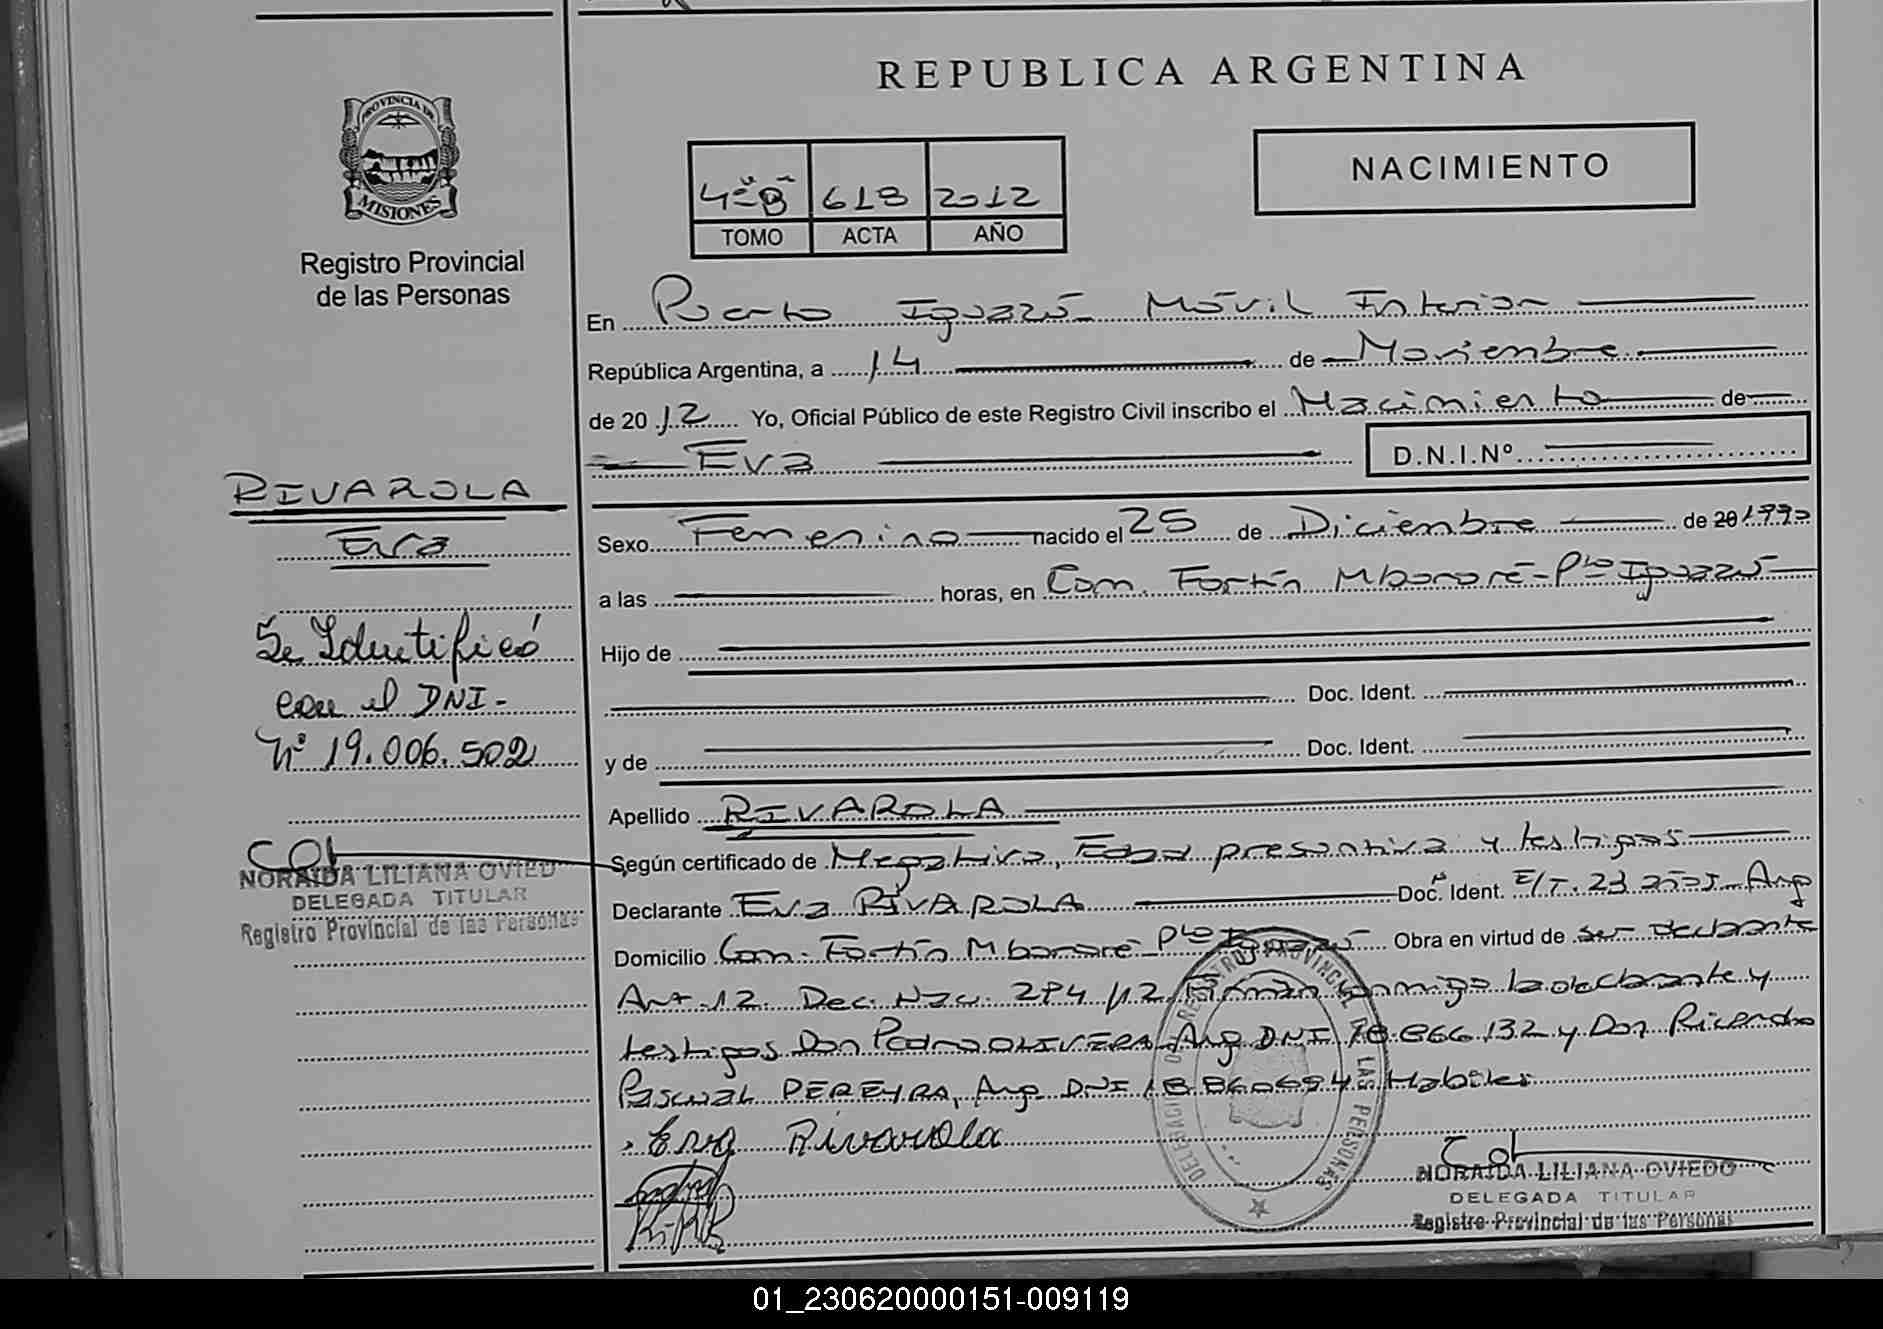 REPUBLICA ARGENTINA
PROVINCIA DE
MISIONES
Registro Provincial
de las Personas
4º "B" 618 2012
TOMO ACTA AÑO
NACIMIENTO
En Puerto Iguazú - Móvil Interior
República Argentina, a 14 de Noviembre
de 2012 Yo, Oficial Público de este Registro Civil inscribo el Nacimiento de
Eva D.N.I.Nº
RIVAROLA
Eva
Se Identificó
con el DNI-
Nº 19.006.502
NORAIDA LILIANA OVIEDO
DELEGADA TITULAR
Registro Provincial de las Personas
Sexo Femenino nacido el 25 de Diciembre de 20 1990
a las horas, en Com. Fortín Mbororé - Pto Iguazú
Hijo de
Doc. Ident.
y de Doc. Ident.
Apellido RIVAROLA
Según certificado de Negativa, Edad presuntiva y testigos
Declarante Eva RIVAROLA Doc. Ident. Arg
Domicilio Com. Fortín Mbororé - Pto Iguazú Obra en virtud de ser declarante
Art. 12 Dec. Nac. 294/12 Firman conmigo la declarante y
testigos Don Pedro OLIVERA Arg DNI 18.866.132 y Don Ricardo
Pascual PEREYRA, Arg DNI Habiles
Eva Rivarola
DELEGACION REGISTRO PROVINCIAL DE LAS PERSONAS
NORAIDA LILIANA OVIEDO
DELEGADA TITULAR
Registro Provincial de las Personas
01_230620000151-009119